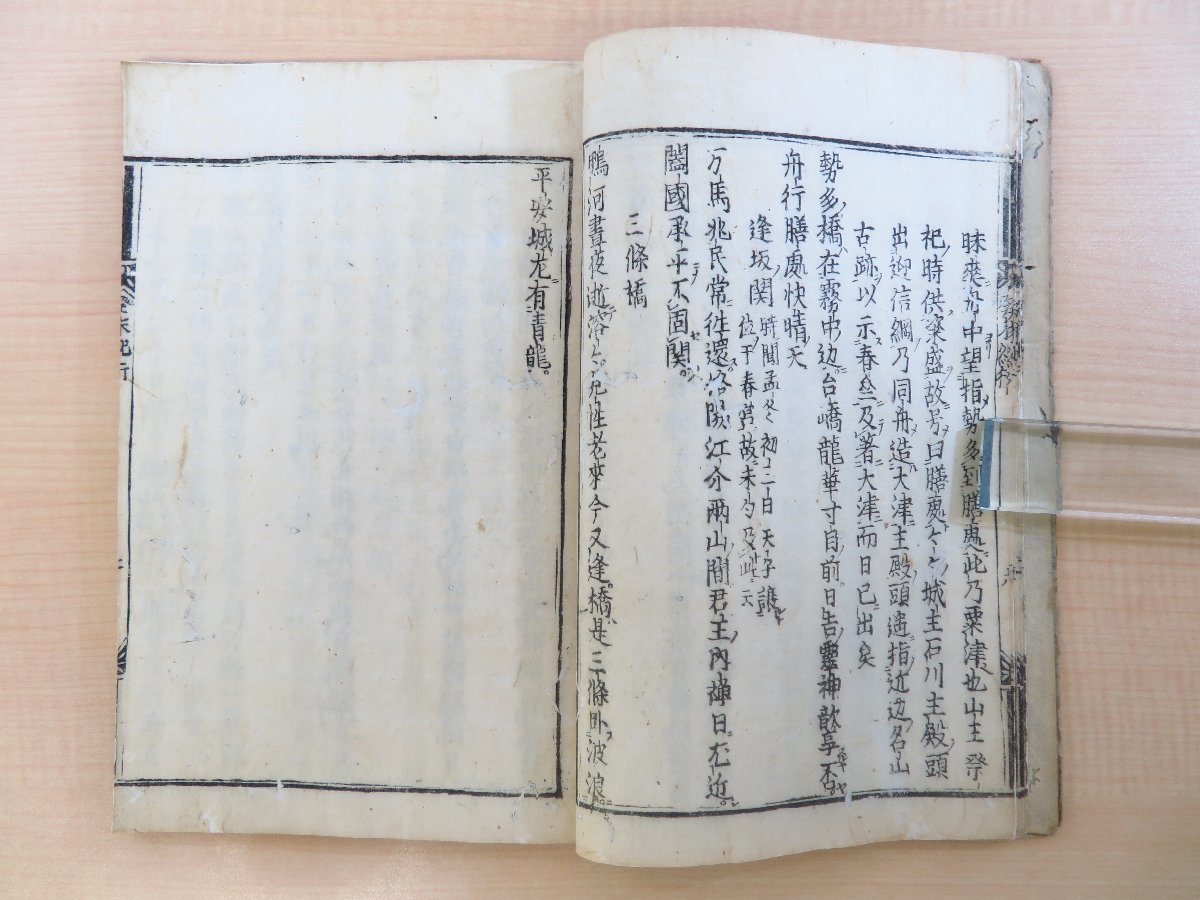 昧爽舟中望指勢多到膳處此乃粟津也山王祭
祀時供粢盛故号曰膳處々々城主石川主殿頭
出迎信綱乃同舟造大津主殿頭遙指近辺名山
古跡以示春益及著大津而日已出矣
勢多橋在霧中辺台嶠龍華寸目前日告靈神歆享否
舟行膳處快晴天
逢坂関 時聞孟冬初十二日天子譲
位于春宮故末句及此天
万馬兆民常往還洛陽江介兩山間君主內禅日左近
闔國承平不固関
三條橋
鴨河晝夜逝溶々况性老來今又逢橋是三條臥波浪
平安城左有青龍
紀行